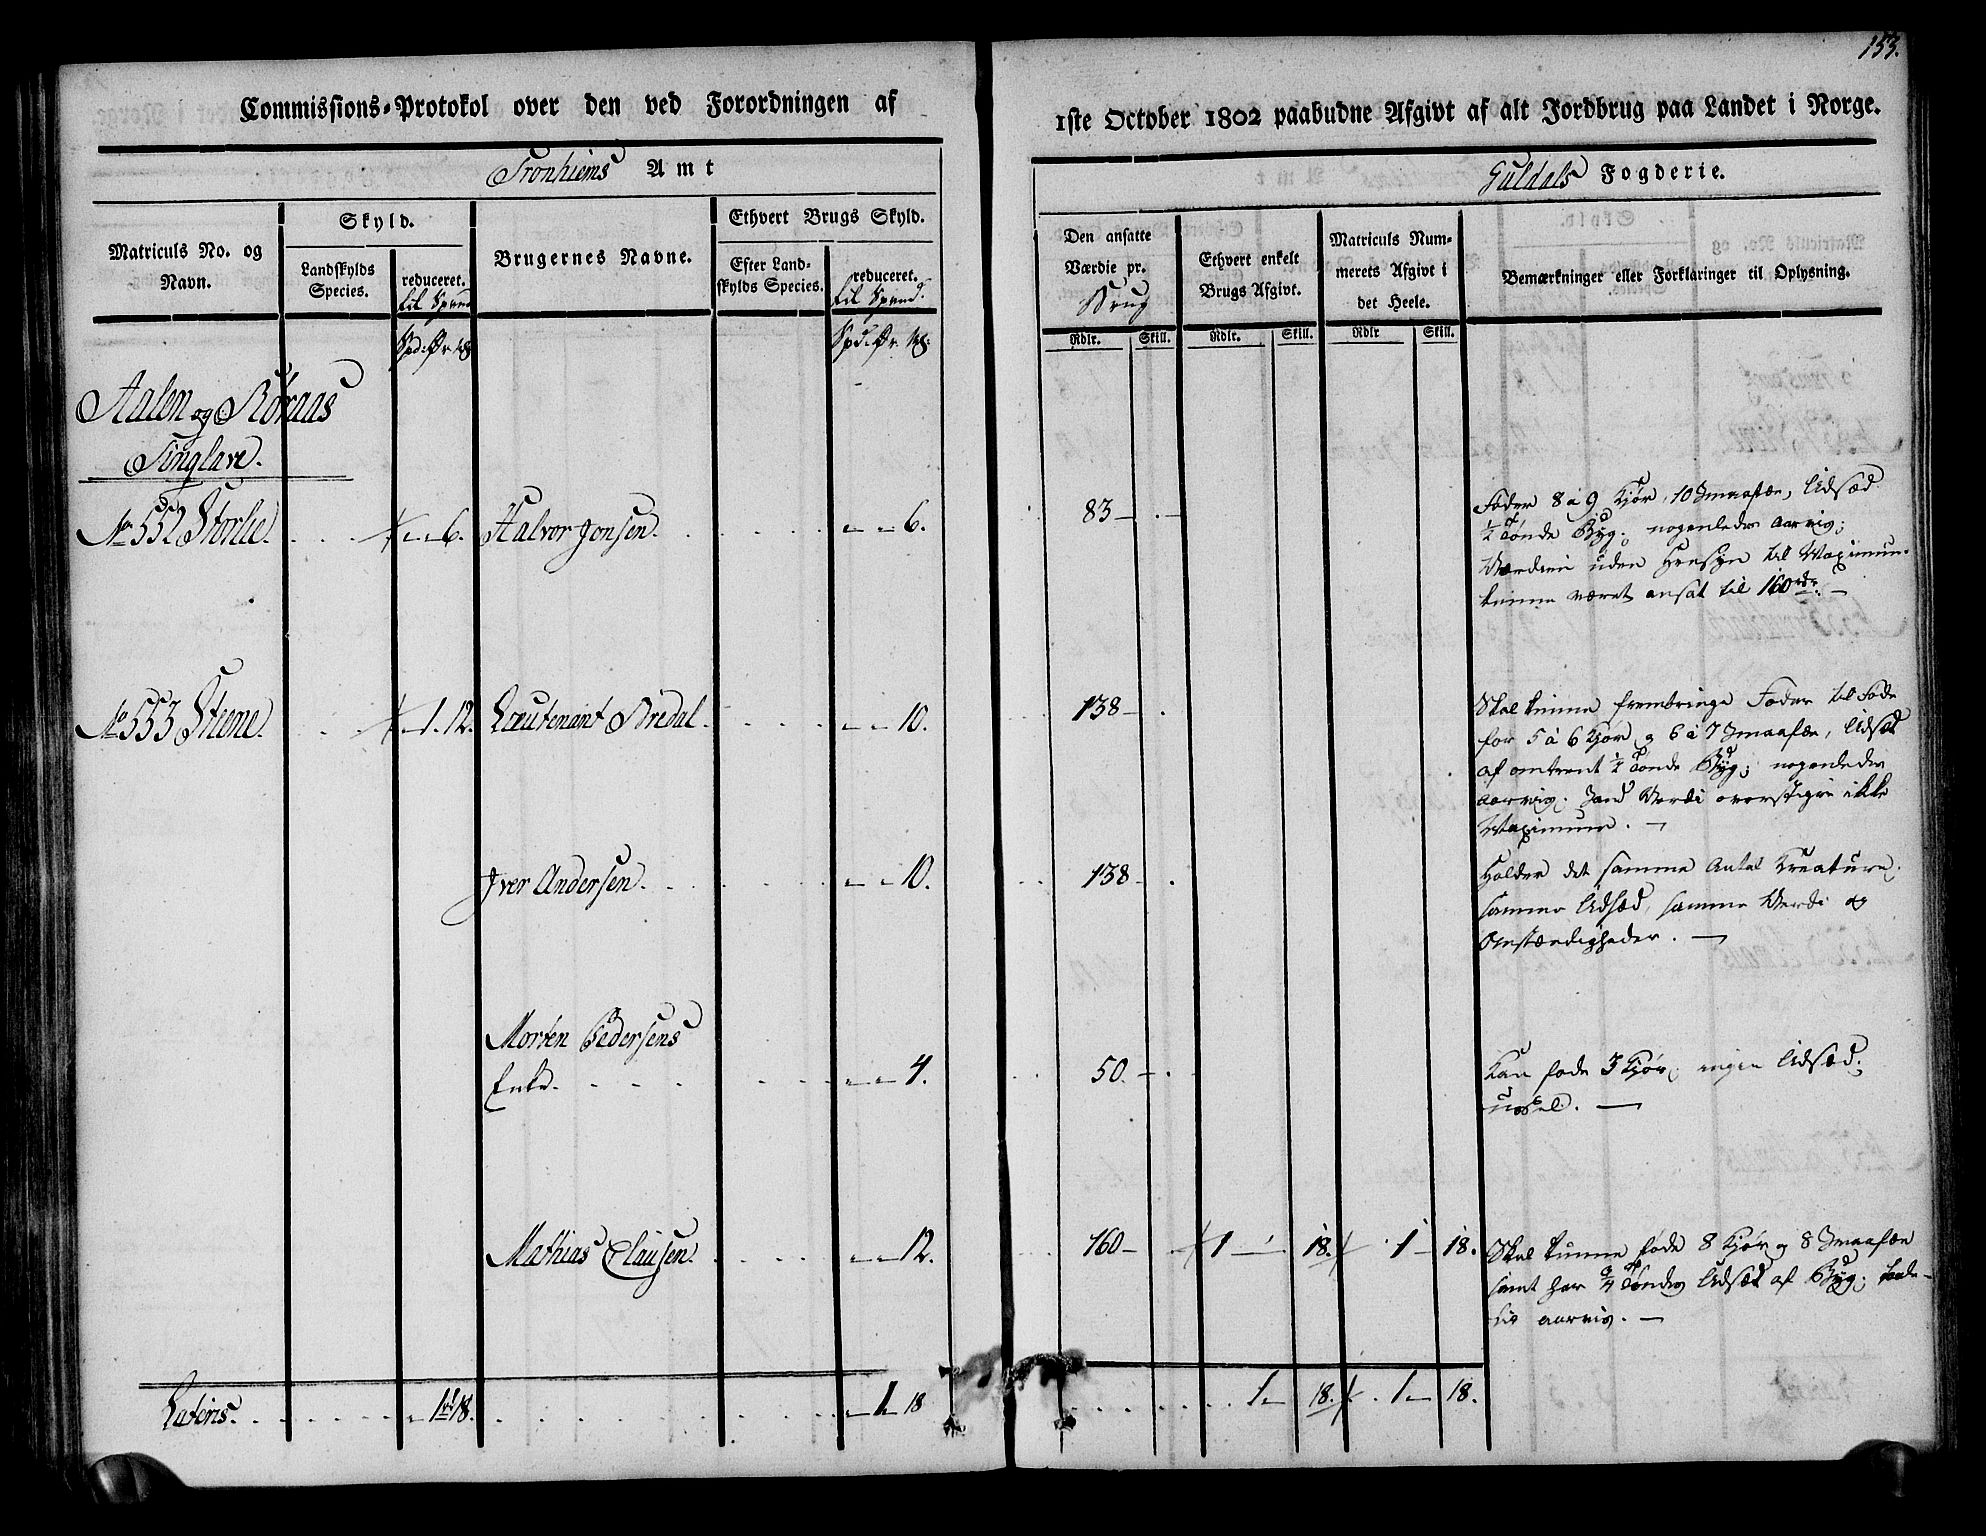 153.
Commissions-Protokol over den ved Forordningen af
1ste October 1802 paabudne Afgivt af alt Jordbrug paa Landet i Norge.
Tronhiems Amt
Guldals Fogderie.
Matriculs No. og Navn.
Skyld.
Landskylds Species.
reduceret. til Spand
Brugernes Navne.
Ethvert Brugs Skyld.
Efter Landskylds Species.
reduceret. til Spand.
Den ansatte Værdie pr. Brug
Ethvert enkelt Brugs Afgivt.
Matriculs Nummerets Afgivt i det Heele.
Bemærkninger eller Forklaringer til Oplysning.
Rdlr. Skill. Rdlr. Skill. Rdlr Skill.
Aalen og Røraas
Tinglave.
No 552 Storlie. 6. Halvor Jonsen. 6. 83
Føder 8 a 9 Kjør, 10 Smaafæ, Udsæd
1/2 Tønde Byg; nogenledes aarvis;
Værdien uden Hensyn til Maximum
kunne været ansat til 160 rdr.
No 553 Steene. 1. 12. Lieutenant Bredal. 10. 138
Skal kunne frembringe Foder til Føde
for 5 a 6 Kjør og 6 a 7 Smaafæ, Udsæd
af omtrent 1/2 Tønde Byg; nogenledes
aarvis. Værdi overstiger ikke
Maximum.
Iver Andersen. 10. 138
Holder det samme Antal Kreature,
samme Udsæd, samme Verdi og
Omstændigheder.
Morten Pedersens
Enke. 4. 50.
Kan føde 3 Kjør, ingen Udsæd;
ussel.
Mathias Clausen. 12. 160 1 18. 1 18.
Skal kunne føde 8 Kjør og 8 Smaafæ
samt har 3/4 Tønde Udsæd af Byg;
aarvis.
Lateris. 1 18. 1 18 1 18. 1 18.